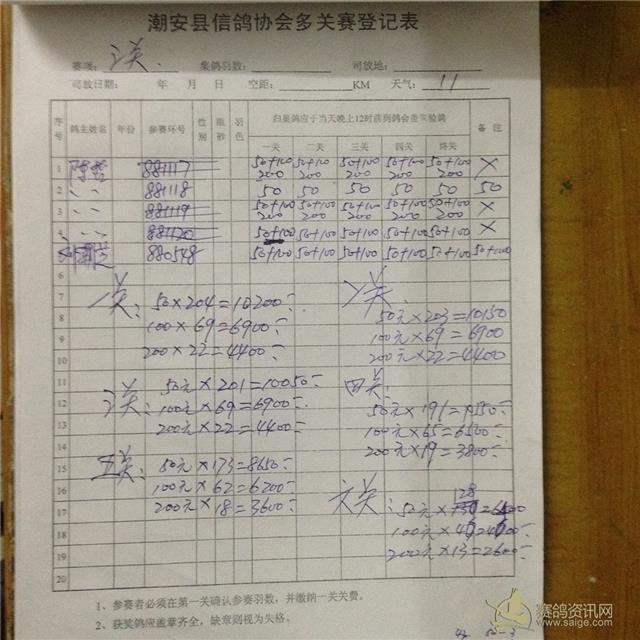 潮安县信鸽协会多关赛登记表
赛项： 集鸽羽数： 司放地：
司放日期： 年 月 日 空距： KM 天气： 11
归巢鸽应于当天晚上12时前到鸽会盖朱验鸽
序号 鸽主姓名 年份 参赛环号 性别 眼砂 羽色 一关 二关 三关 四关 终关 备注
1 881117 50+100 200 50+100 200 50+100 200 50+100 200 50+100 200 ×
2 881118 50 50 50 50 50 50
3 881119 50+100 200 50+100 200 50+100 200 50+100 200 50+100 200 ×
4 881120 50+100 50+100 50+100 50+100 50+100 ×
5 880548 50+100 50+100 50+100 50+100 50+100 50+100
6
7
8
9
10
11
12
13
14
15
16
17
18
19
20
一关： 50×204=10200
100×69=6900
200×22=4400
二关：
50元×203=10150
100元×69=6900
200元×22=4400
三关： 50元×201=10050
100元×69=6900
200元×22=4400
四关：
50元×191=9550
100元×65=6500
200元×19=3800
五关： 50元×173=8650
100元×62=6200
200元×18=3600
六关：
128
200元×13=2600
1、参赛者必须在第一关确认参赛羽数，并缴纳一关关费。
2、获奖鸽应盖章齐全，缺章则视为失格。
赛鸽资讯网
www.saige.com